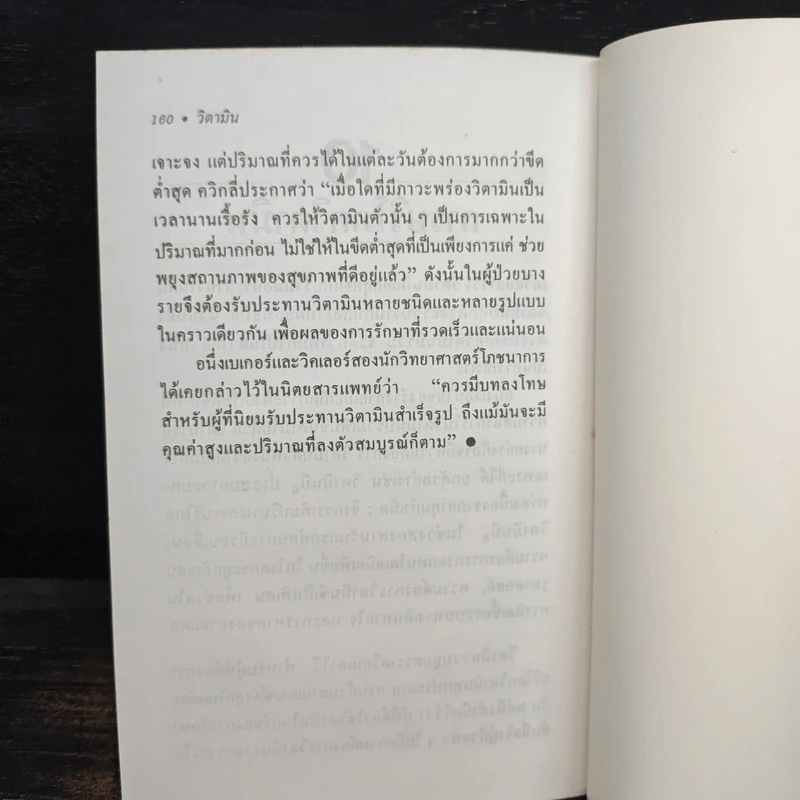 160 • วิตามิน
เจาะจง แต่ปริมาณที่ควรได้ในแต่ละวันต้องการมากกว่าขีด
ต่ำสุด ควิกลี่ประกาศว่า “เมื่อใดที่มีภาวะพร่องวิตามินเป็น
เวลานานเรื้อรัง ควรให้วิตามินตัวนั้น ๆ เป็นการเฉพาะใน
ปริมาณที่มากก่อน ไม่ใช่ให้ในขีดต่ำสุดที่เป็นเพียงการแค่ ช่วย
พยุงสถานภาพของสุขภาพที่ดีอยู่แล้ว” ดังนั้นในผู้ป่วยบาง
รายจึงต้องรับประทานวิตามินหลายชนิดและหลายรูปแบบ
ในคราวเดียวกัน เพื่อผลของการรักษาที่รวดเร็วและแน่นอน
อนึ่งเบเกอร์และวิคเลอร์สองนักวิทยาศาสตร์โภชนาการ
ได้เคยกล่าวไว้ในนิตยสารแพทย์ว่า “ควรมีบทลงโทษ
สำหรับผู้ที่นิยมรับประทานวิตามินสำเร็จรูป ถึงแม้มันจะมี
คุณค่าสูงและปริมาณที่ลงตัวสมบูรณ์ก็ตาม” ●